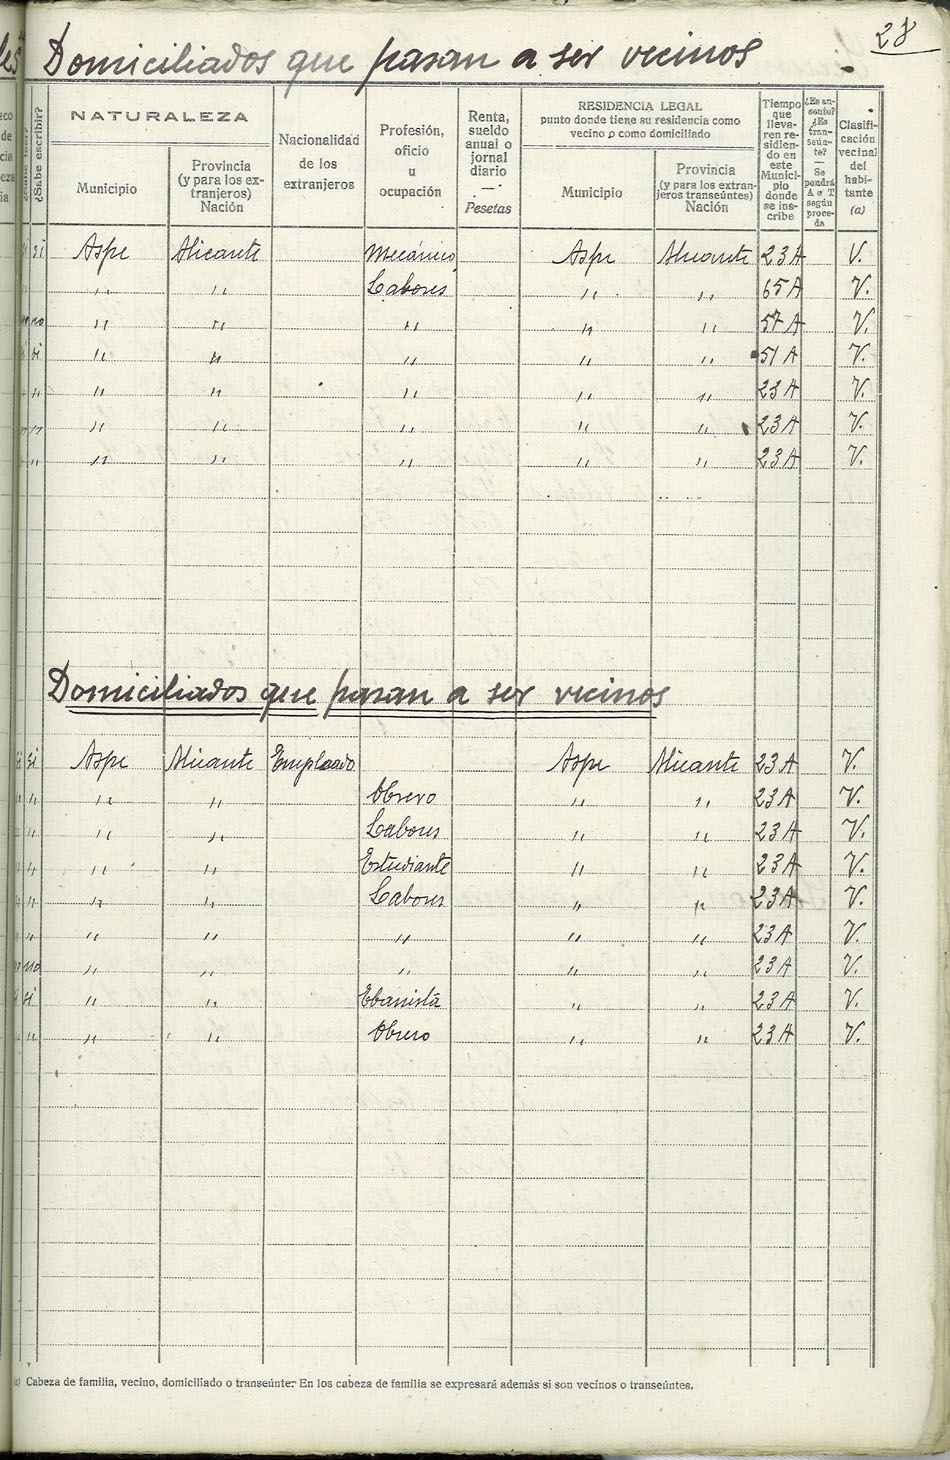 28
Domiciliados que pasan a ser vecinos
¿Sabe escribir?
NATURALEZA
Municipio
Provincia
(y para los ex-
tranjeros)
Nación
Nacionalidad
de los
extranjeros
Profesión,
oficio
u
ocupación
Renta,
sueldo
anual o
jornal
diario
—
Pesetas
RESIDENCIA LEGAL
punto donde tiene su residencia como
vecino o como domiciliado
Municipio
Provincia
(y para los extran-
jeros transeúntes)
Nación
Tiempo
que
lleva-
ren re-
sidien-
do en
este
Munici-
pio
donde
se ins-
cribe
¿Es au-
sente?
¿Es
tran-
seún-
te?
—
Se
pondrá
A o T
según
proce-
da
Clasifi-
cación
vecinal
del
habi-
tante
(a)
si Aspe Alicante Mecánico Aspe Alicante 23 A V.
" " Labores " " 65 A V.
no " " " " " 57 A V.
si " " " " " 51 A V.
" " " " " " 23 A V.
" " " " " " 23 A V.
" " " " " " 23 A V.
Domiciliados que pasan a ser vecinos
si Aspe Alicante Empleado Aspe Alicante 23 A V.
" " " Obrero " " 23 A V.
" " " Labores " " 23 A V.
" " " Estudiante " " 23 A V.
" " " Labores " " 23 A V.
" " " " " " 23 A V.
no " " " " " 23 A V.
si " " Ebanista " " 23 A V.
" " " Obrero " " 23 A V.
(a) Cabeza de familia, vecino, domiciliado o transeúnte. En los cabeza de familia se expresará además si son vecinos o transeúntes.